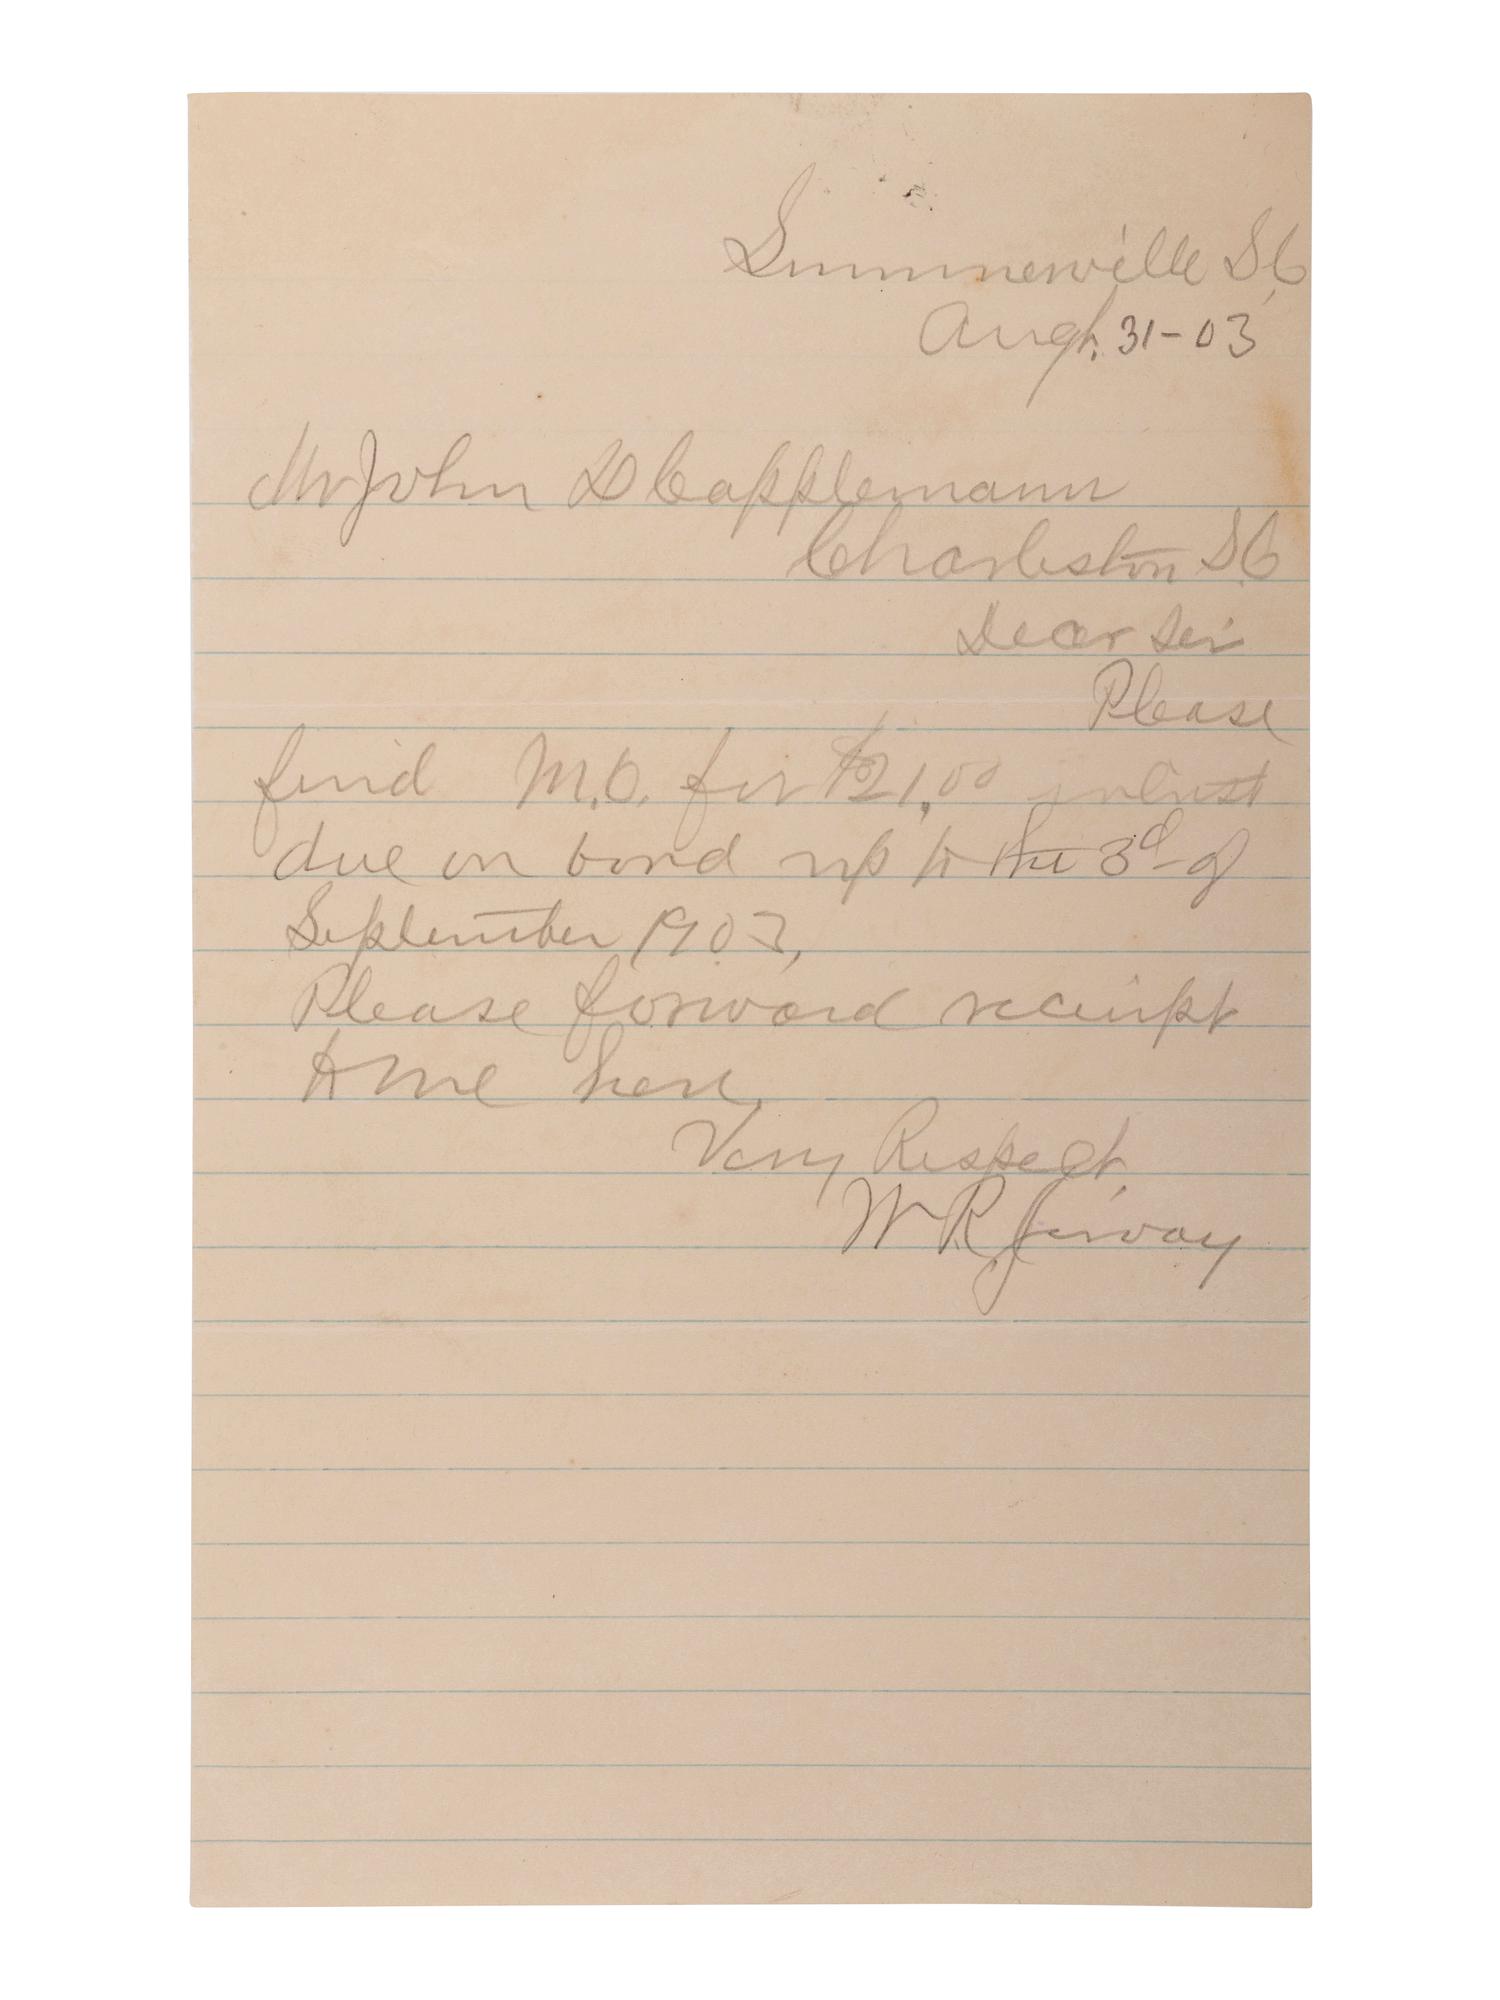 Summerville S.C.
Augt. 31-03
Mr John D Cappelmann
Charleston S.C
Dear Sir
Please
find M.O. for $21.00 interest
due on bond up to the 3d of
September 1903,
Please forward receipt
to me here,
Very Respect,
W R